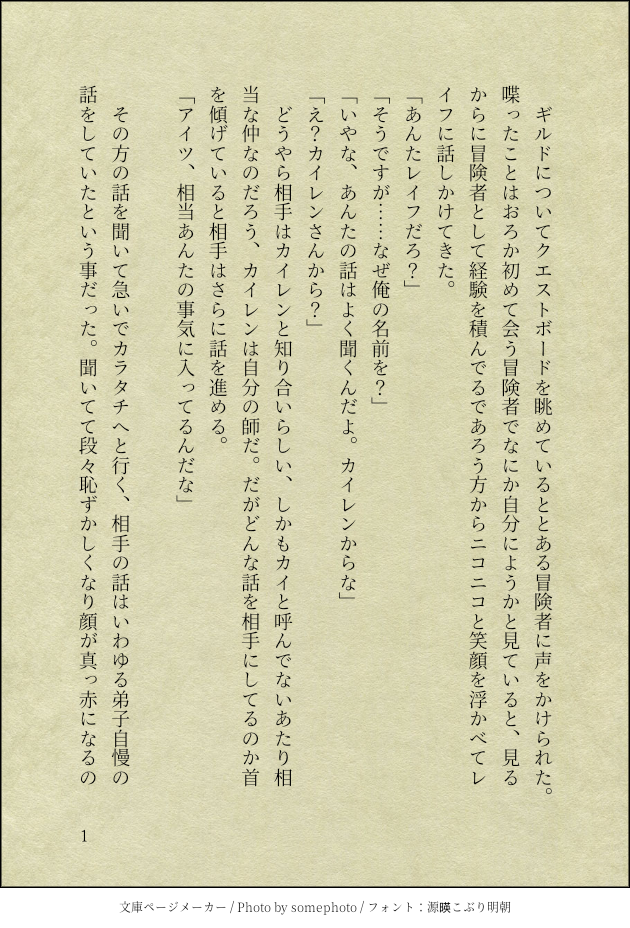 ギルドについてクエストボードを眺めているととある冒険者に声をかけられた。
喋ったことはおろか初めて会う冒険者でなにか自分にようかと見ていると、見る
からに冒険者として経験を積んでるであろう方からニコニコと笑顔を浮かべてレ
イフに話しかけてきた。
「あんたレイフだろ？」
「そうですが……なぜ俺の名前を？」
「いやな、あんたの話はよく聞くんだよ。カイレンからな」
「え？カイレンさんから？」
　どうやら相手はカイレンと知り合いらしい、しかもカイと呼んでないあたり相
当な仲なのだろう、カイレンは自分の師だ。だがどんな話を相手にしてるのか首
を傾げていると相手はさらに話を進める。
「アイツ、相当あんたの事気に入ってるんだな」
　その方の話を聞いて急いでカラタチへと行く、相手の話はいわゆる弟子自慢の
話をしていたという事だった。聞いてて段々恥ずかしくなり顔が真っ赤になるの
1
文庫ページメーカー / Photo by somephoto / フォント：源暎こぶり明朝